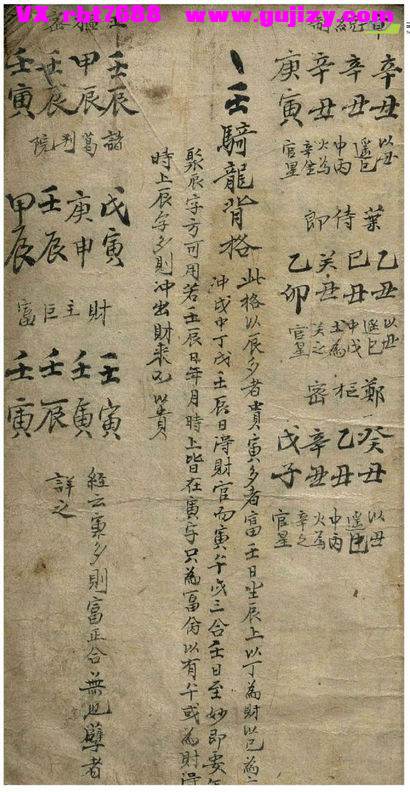 VX-rbt7688 www.gujizy.com
辛丑 以丑
辛丑 遥巳
辛丑 中丙
庚寅 火為
辛金
官星
葉待即
乙丑 以丑
乙丑 遥巳
巳丑 中戊
癸丑 土為
乙卯 癸之
官星
鄭樞密
癸丑 以丑
乙丑 遥巳
辛丑 中丙
戊子 火為
辛之
官星
壬騎龍背格
此格以辰多者貴寅多者富壬日坐辰上以丁為財以己為
沖戌中丁戊壬辰日得財官而寅午戌三合壬日至妙即要
聚辰字方可用若壬辰日年月時上皆在寅字只為富命以有午戌為財得
時上辰字多則沖出財來 以貴
壬辰
甲辰
壬辰
壬寅
諸葛判院
戊寅
庚申
壬辰
甲辰
財主巨富
壬寅
壬寅
壬辰
壬寅
經云寅多則富正合無
詳之